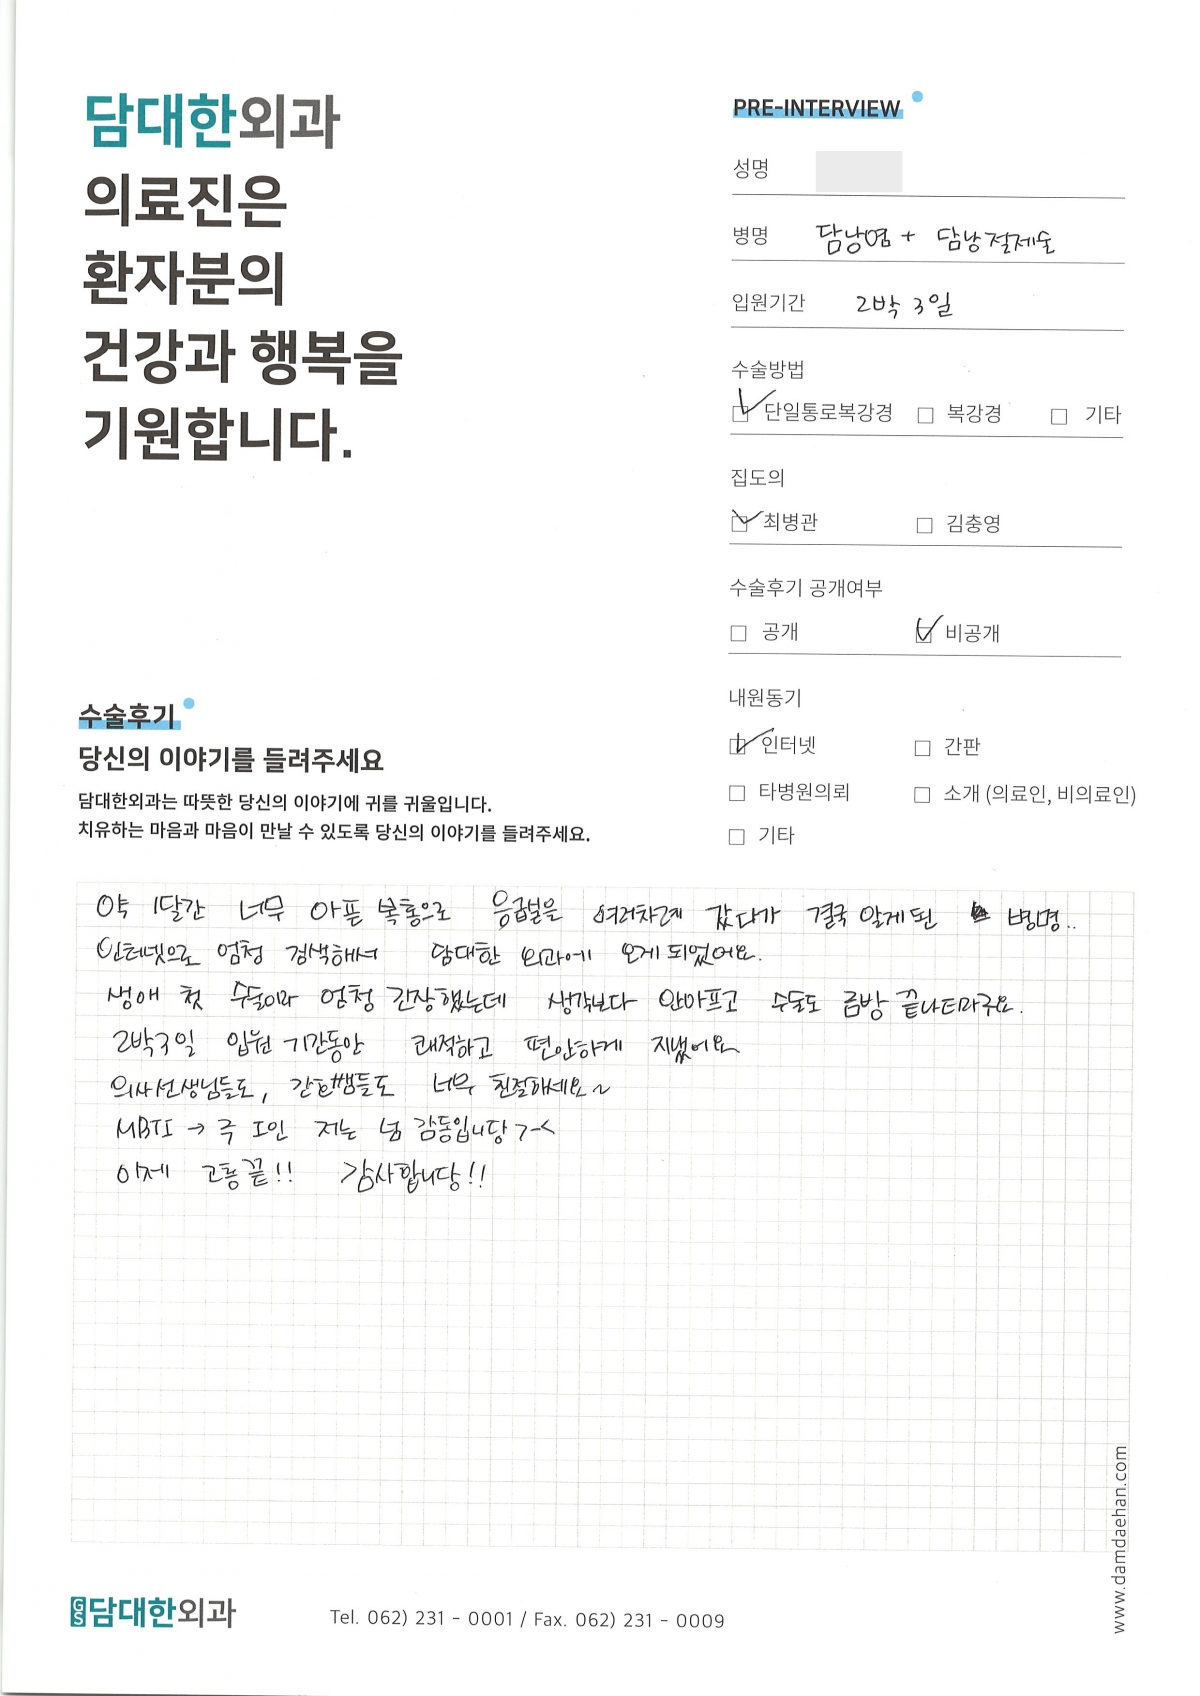 담대한외과
의료진은
환자분의
건강과 행복을
기원합니다.
PRE-INTERVIEW
성명
병명 담낭염 + 담낭절제술
입원기간 2박 3일
수술방법
단일통로복강경 복강경 기타
집도의
최병관 김충영
수술후기 공개여부
공개 비공개
내원동기
인터넷 간판
타병원의뢰 소개 (의료인, 비의료인)
기타
수술후기
당신의 이야기를 들려주세요
담대한외과는 따뜻한 당신의 이야기에 귀를 귀울입니다.
치유하는 마음과 마음이 만날 수 있도록 당신의 이야기를 들려주세요.
약 1달간 너무 아픈 복통으로 응급실은 여러차례 갔다가 결국 알게된 병명..
인터넷으로 엄청 검색해서 담대한 외과에 오게 되었어요.
생애 첫 수술이라 엄청 긴장했는데 생각보다 안아프고 수술도 금방 끝나더라구요.
2박3일 입원 기간동안 쾌적하고 편안하게 지냈어요
의사선생님들도, 간호쌤들도 너무 친절하세요~
MBTI → 극 I인 저는 넘 감동입니당 >-<
이제 고통 끝!! 감사합니당!!
GS 담대한외과
Tel. 062) 231 - 0001 / Fax. 062) 231 - 0009
www.damdaehan.com